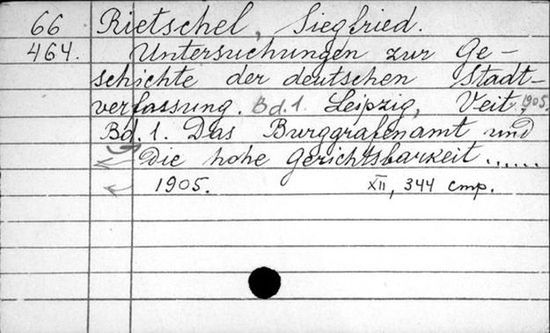 66 Rietschel, Siegfried.
464. Untersuchungen zur Ge-
schichte der deutschen Stadt-
verfassung. Bd. 1. Leipzig, Veit, 1905.
Bd. 1. Das Burggrafenamt und
die hohe Gerichtsbarkeit ......
1905. XII, 344 стр.